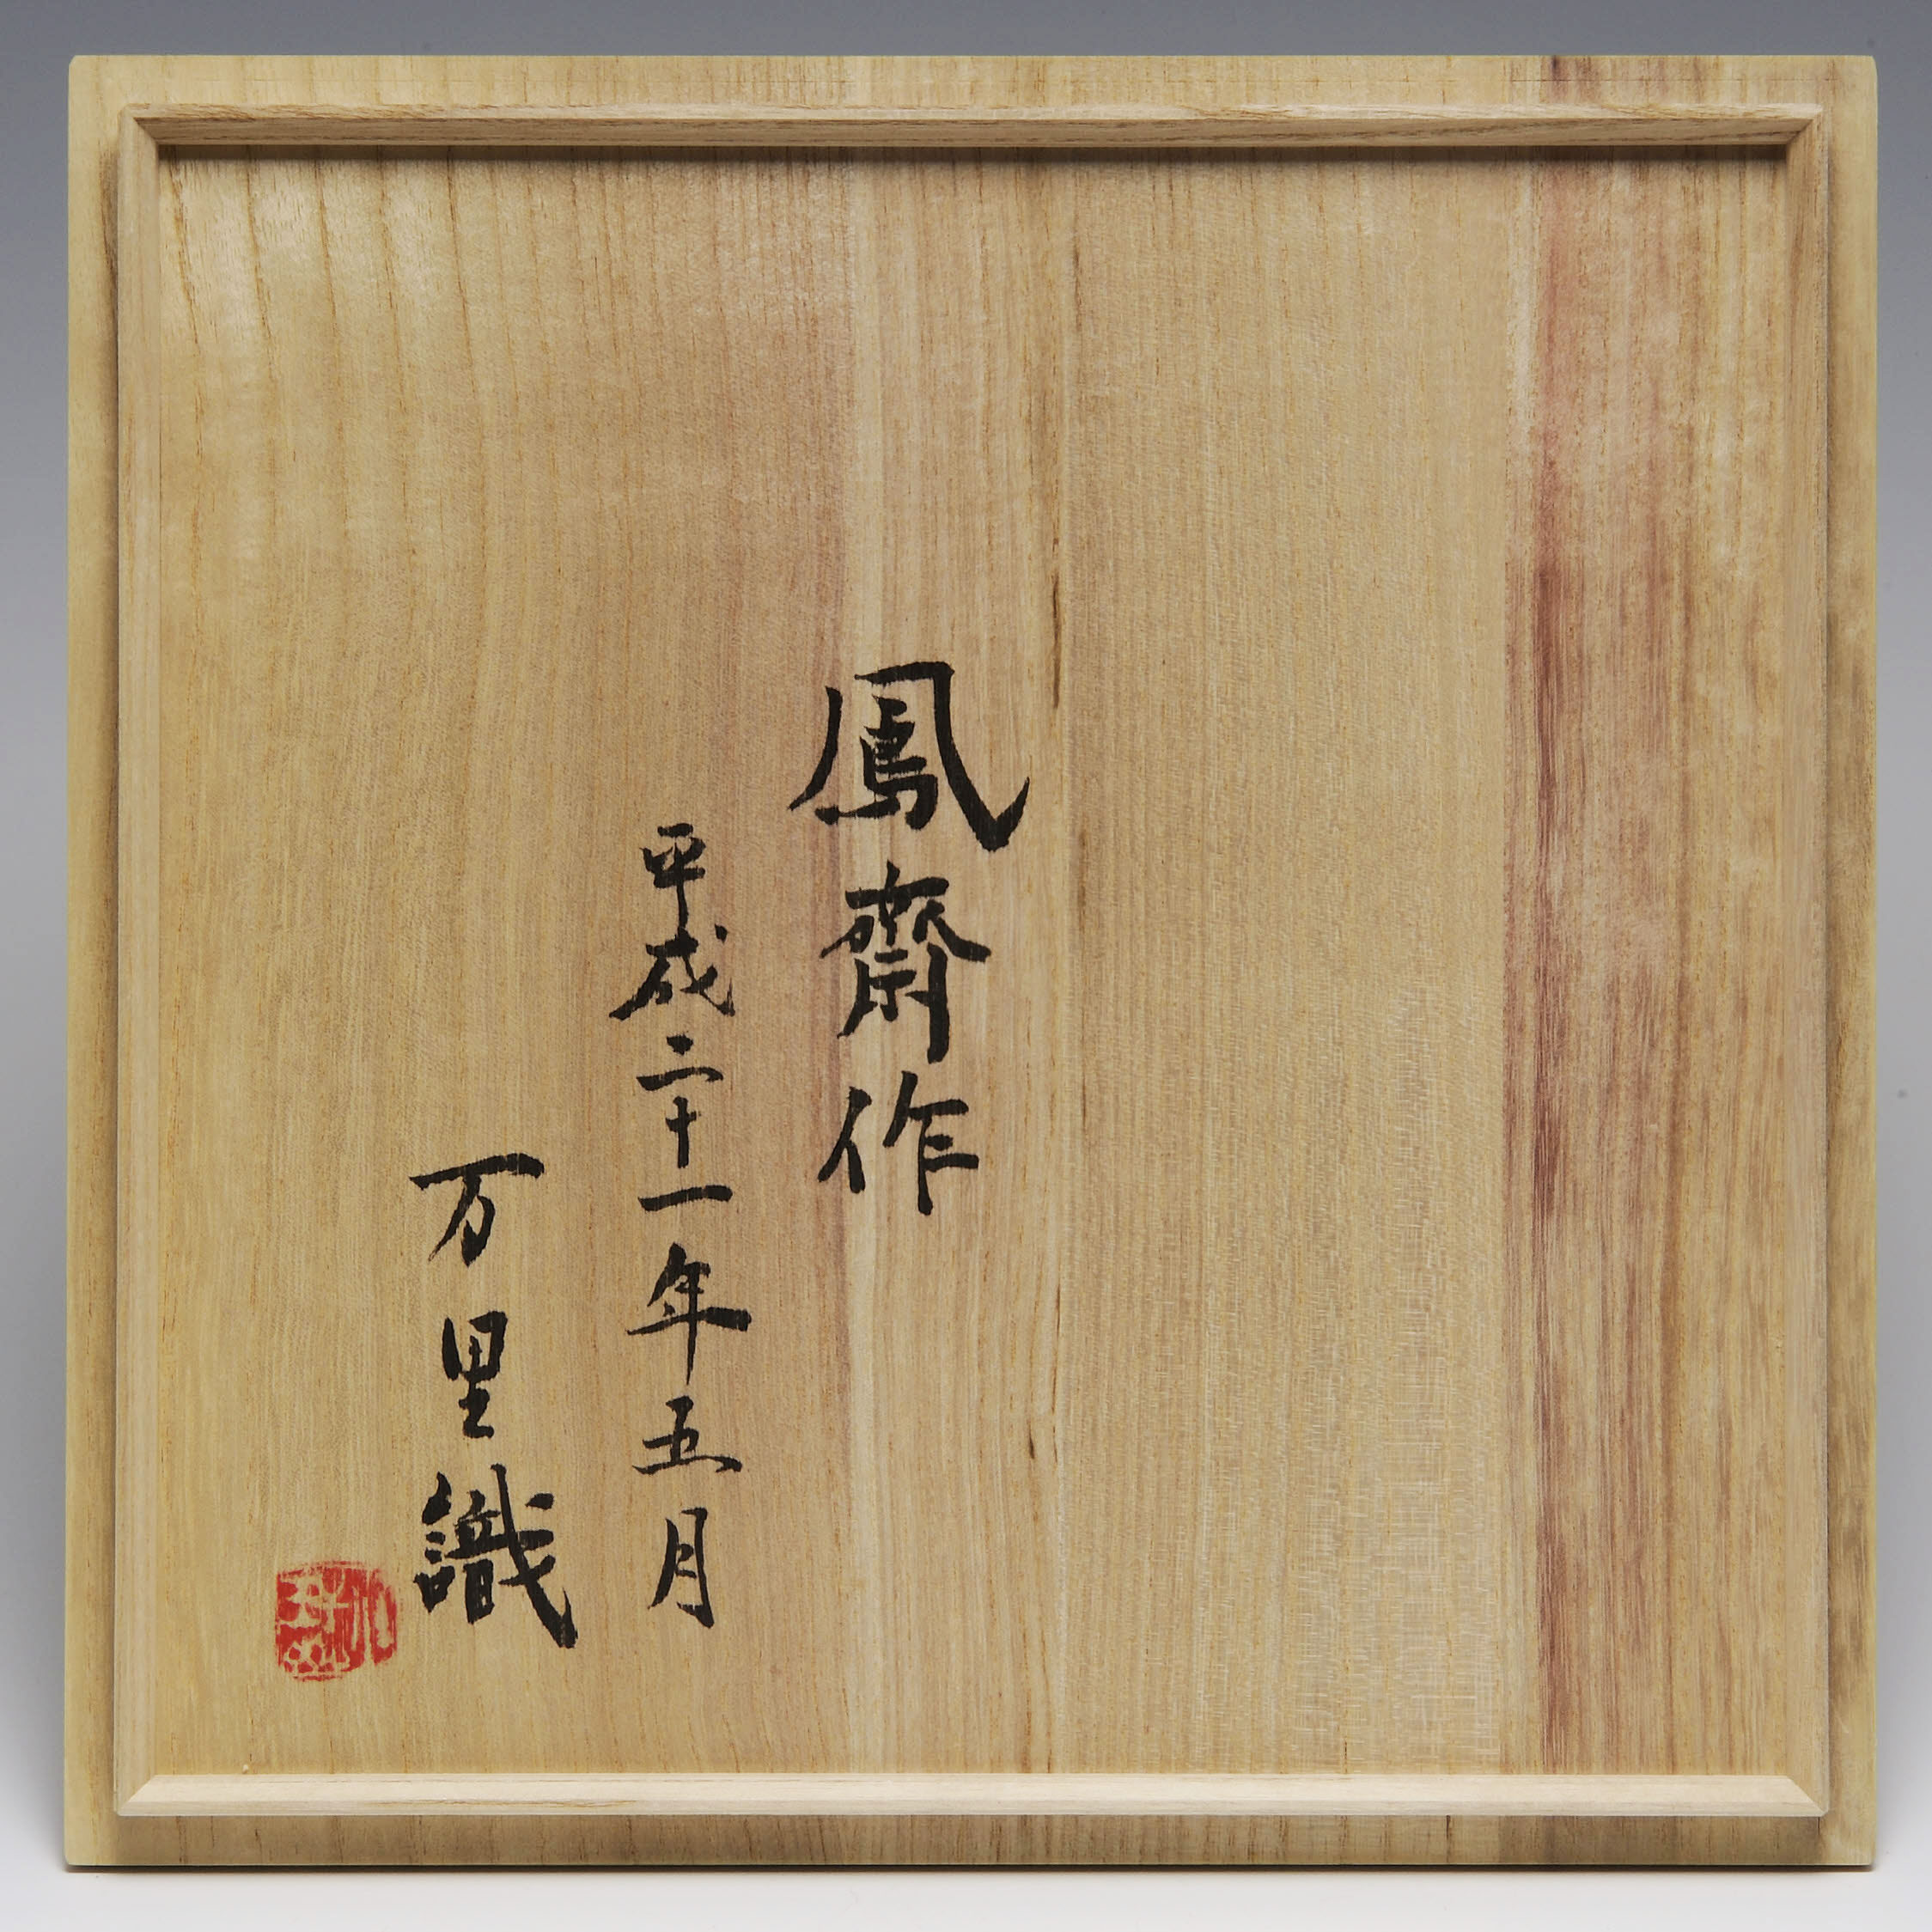 鳳齋作
平成二十一年五月
万里識